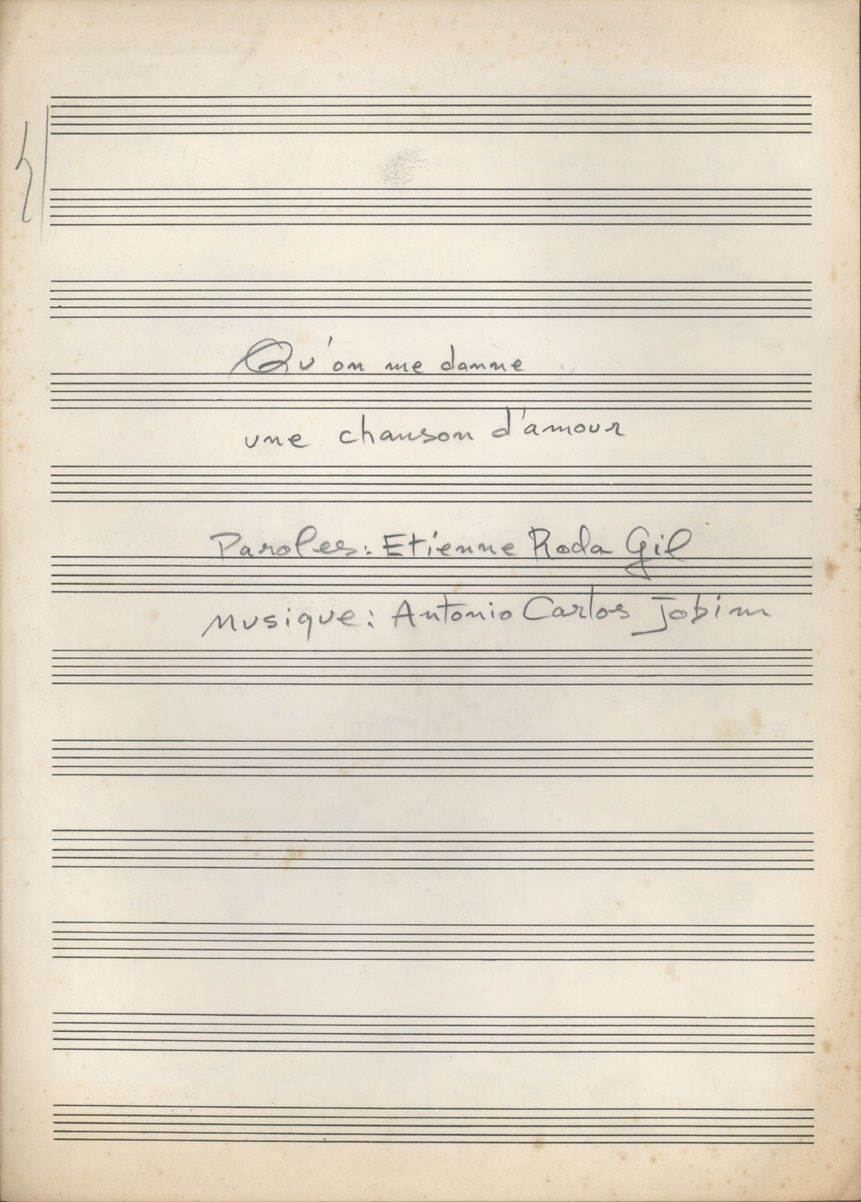 Qu'on me danne
une chanson d'amour
Paroles: Etienne Roda Gil
Musique: Antonio Carlos Jobim